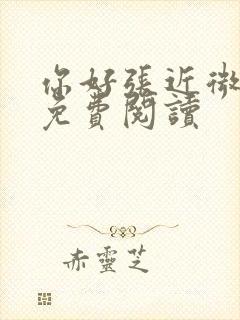 你好張近微
免費閱讀
赤靈芝